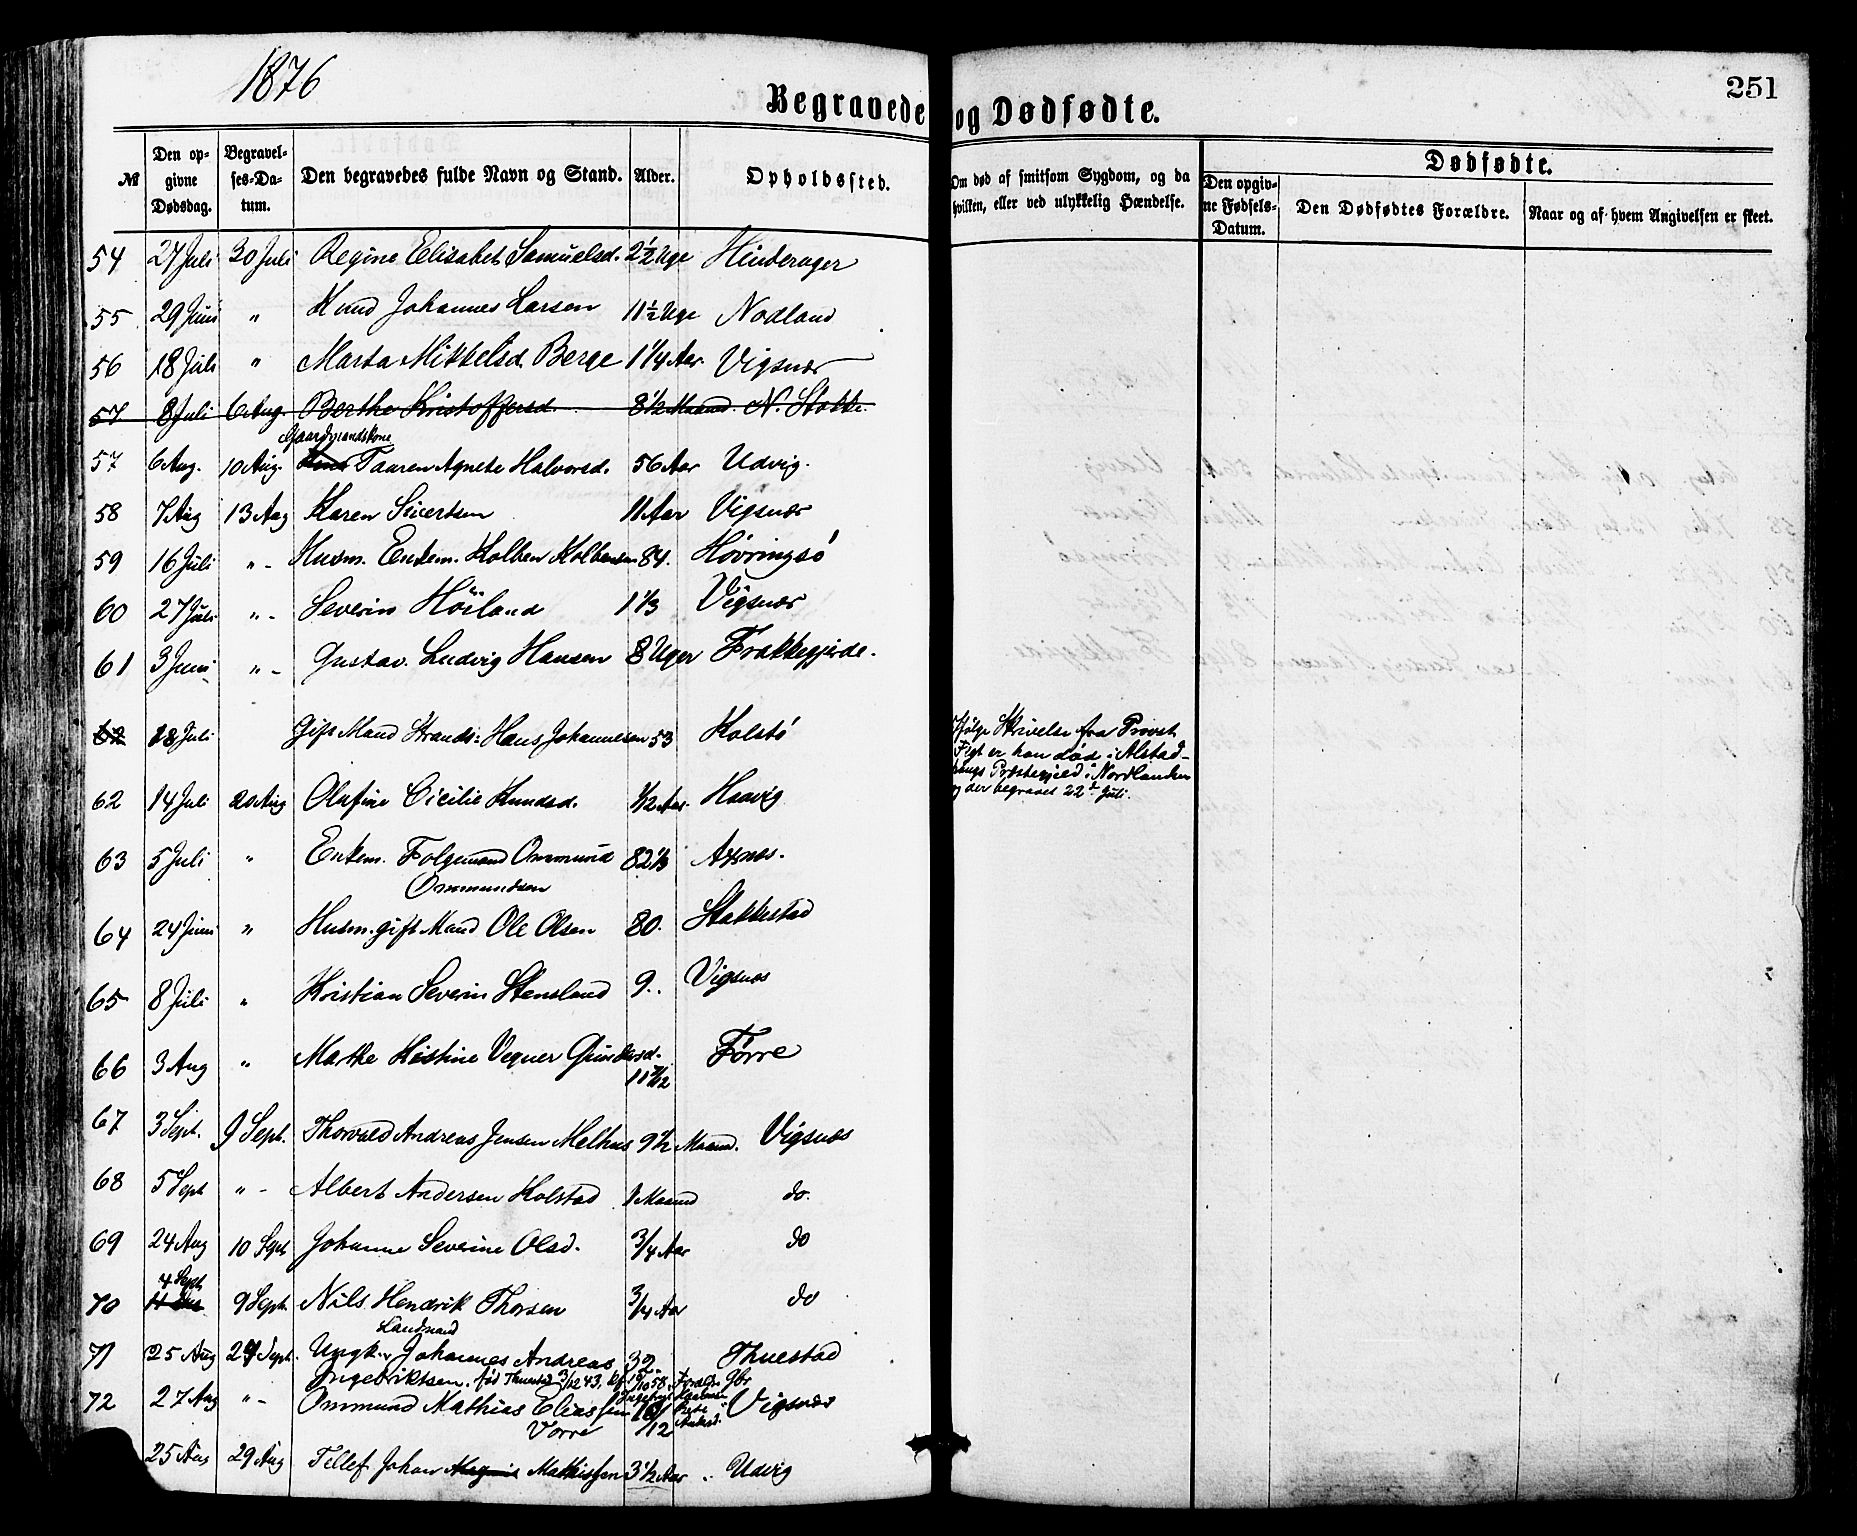 1876
251
Begravede og Dødfødte.
№ Den opgivne Dødsdag. Begravelses-Datum. Den begravedes fulde Navn og Stand. Alder. Opholdssted. Om død af smitsom Sygdom, og da hvilken, eller ved ulykkelig Hændelse. Dødfødte. Den opgivne Fødsels-Datum. Den Dødfødtes Forældre. Naar og af hvem Angivelsen er skeet.
54 27 Juli 30 Juli Regine Elisabet Samuelsd. 2½ Uge Hinderager
55 29 Juni " Knud Johannes Larsen 11½ Uge Nodland
56 18 Juli " Marta Mikkelsd. Berge 1¼ Aar. Vigsnæs
57 8 Juli 6 Aug. Berthe Kristoffersd. 8½ Maaned. N. Stokke.
Gaardmandskone
57 6 Aug. 10 Aug. Taaren Agnete Halvorsd. 56 Aar Udvig.
58 7 Aug 13 Aug Karen Sivertsen 11 Aar Vigsnæs
59 16 Juli " - Husm. Enkem. Kolben Kolbensen 84. Høvringsø
60 27 Juli " - Severin Höiland 1 1/3 Vigsnæs
61 3 Juni " - Gustav Ludvig Hansen 8 Uger Frakkegjerde.
62 18 Juli Gift Mand Strands: Hans Johannesen 53 Kolstø
Ifølge Skrivelse fra Provst
er han død i Alstad-
haugs Præstegjeld i Nordlanden
og der begravet 22de Juli.
62 14 Juli 20 Aug Olafine Cicilie Knudsd. ½ Aar. Haavig
63 5 Juli " Enkem. Folgemand Ommund 82 1/3 Axnæs.
Ommundsen
64 24 Juni " Husm. gift Mand Ole Olsen 80. Stakkestad
65 8 Juli " Kristian Severin Stensland 9. Vigsnæs
66 3 Aug " Marthe Kistine Vegner Gundersd. 11 Førre
67 3 Sept. 9 Sept. Thorvald Andreas Jensen Melhus 9½ Maaned. Vigsnæs
68 5 Sept " - Albert Andersen Holstad 1 Maaned do.
69 24 Aug 10 Sept Johanne Severine Olsd. 3/4 Aar do
4 Sept
70 9 Sept. Nils Hendrik Thorsen 3/4 Aar do
Landmand
71 25 Aug 24 Sept. Ungk. Johannes Andreas 32. Thuestad
Ingebriktsen. født Thuestad 3/12 43. Kf. 10/10 58. Forældre Gbr.
72 27 Aug " - Ommund Mathias Eliassen Vigsnæs
Vorre
25 Aug 29 Aug Tellef Johan Magnus Mathissen 3½ Aar " Udvig